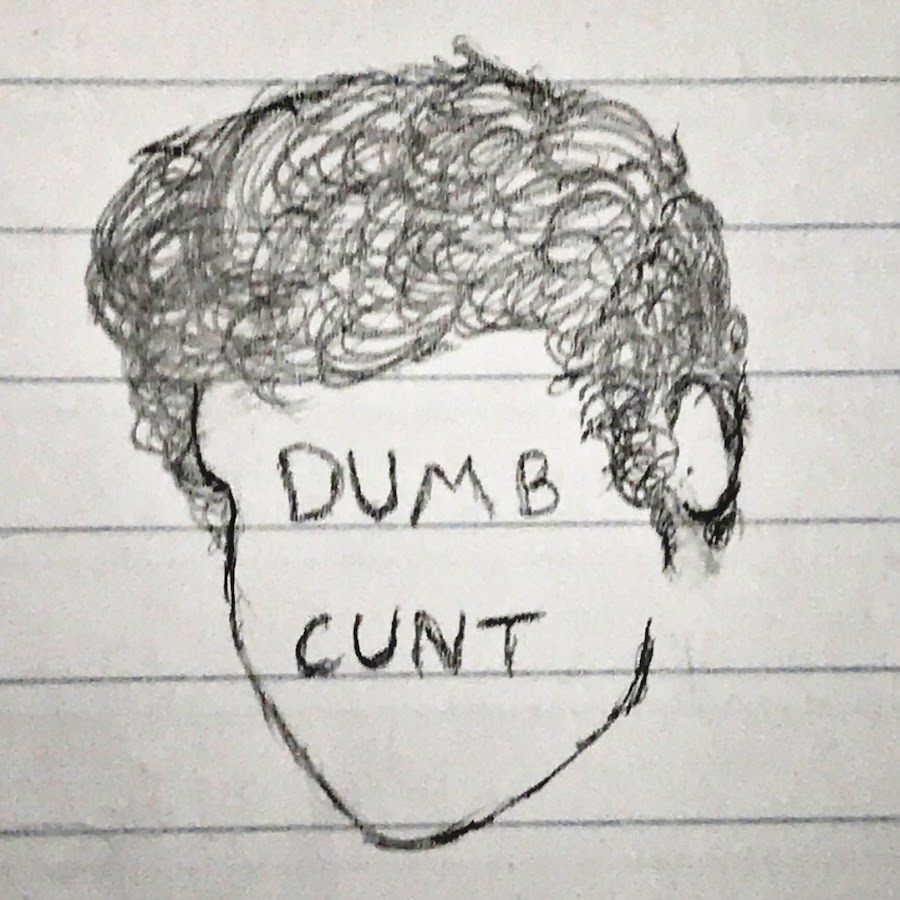 DUMB
CUNT